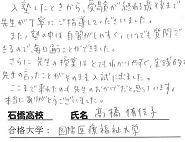 入塾したときから、受験が終わる最後まで
先生が丁寧にご指導してくださいました。
また、塾の中は自習がしやすく、いつでも質問で
きるので毎日通うことができました。
さらに、先生の授業はとても分かりやすく、
先生の言ったことがそのまま入試に出ました。
ここまで来れたのも先生のおかげだと思っています。
本当にありがとうございました。
石橋高校 氏名 髙橋 佳子
合格大学： 国際医療福祉大学